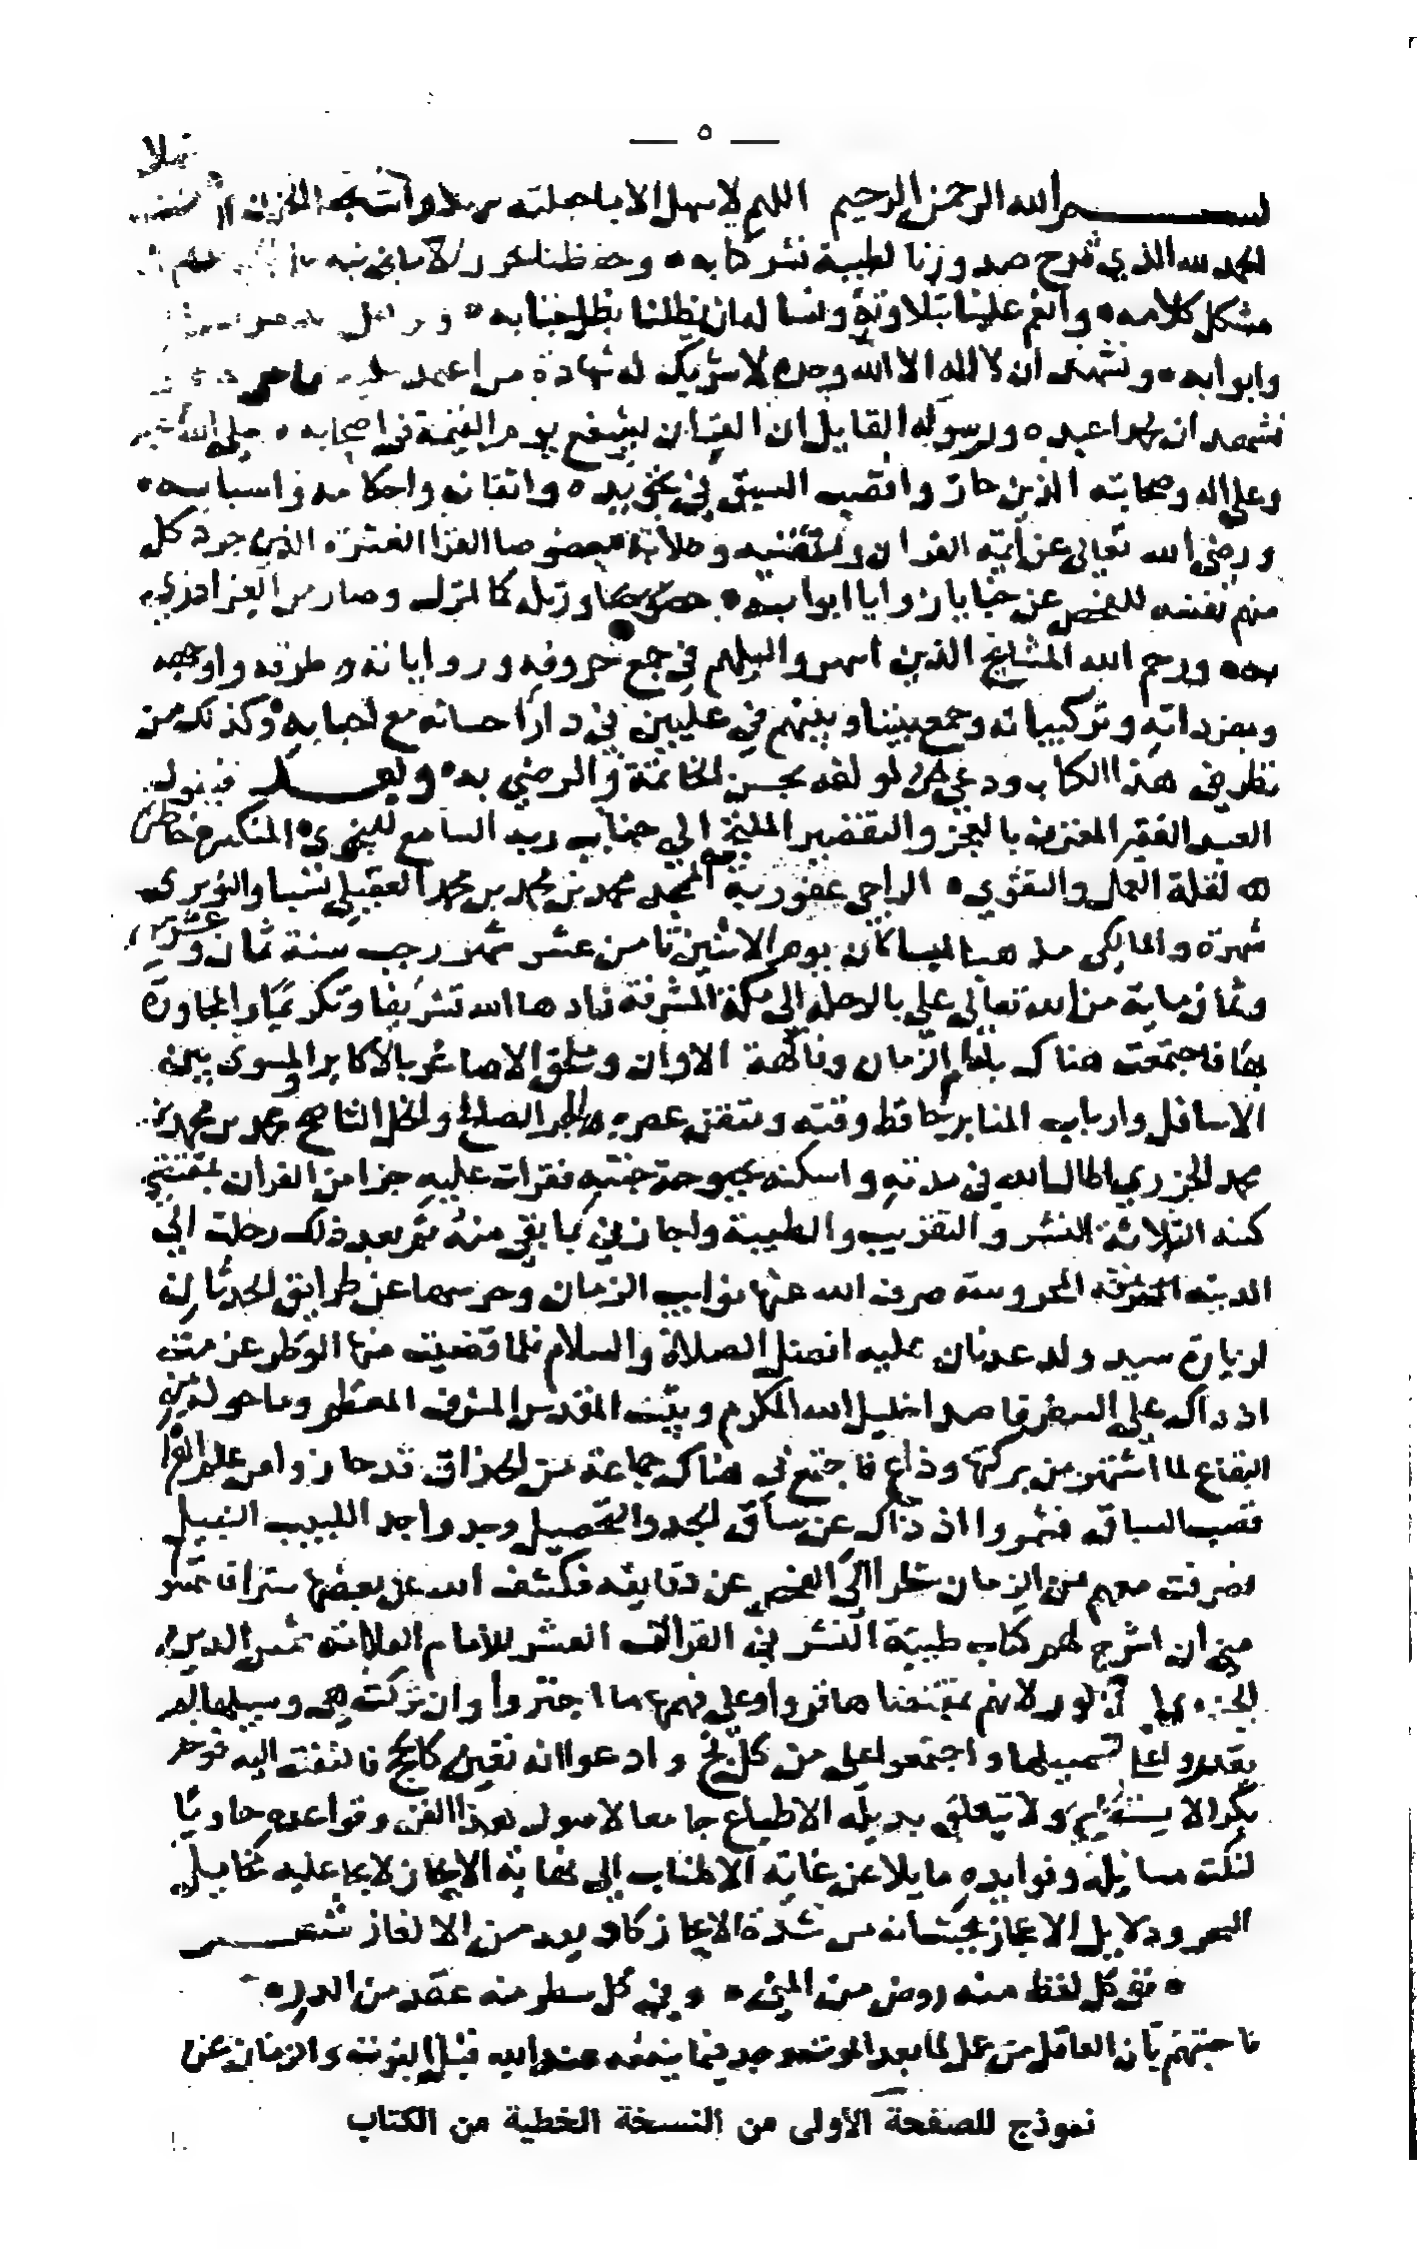 — ٥ —
بسم الله الرحمن الرحيم اللهم لا سهل الا ما جعلته سهلا وانت تجعل الحزن
الحمد لله الذي شرح صدورنا لطيبة نشر كتابه وحفظنا
مشكل كلامه وانعم علينا بتلاوته ونساله ان يظلنا بظل جنابه
وابوابه ونشهد ان لا اله الا الله وحده لا شريك له شهادة من اعتمد عليه
نشهد ان محمدا عبده ورسوله القايل ان القران يشفع يوم القيمة في اصحابه صلى الله
وعلى اله وصحابته الذين حازوا قصب السبق في تجويده واتقانه واحكامه واسبابه
ورضي الله تعالى عن ايمة القران خصوصا القرا العشرة الذين جرد كل
منهم نفسه للفحص عن خبايا زوايا ابوابه ورتله كما انزل وصار من
ورحم الله المشايخ الذين اسهروا ليلهم في جمع حروفه ورواياته وطرقه واوجهه
ومفرداته وتركيباته وجمع بيننا وبينهم في عليين في دار احسانه مع احبابه وكذلك من
نظر في هذا الكتاب ودعى لمولفه بحسن الخاتمة والرضى به وبعد فيقول
العبد الفقير المعترف بالعجز والتقصير الملتجئ الى جناب ربه السامع للنجوى المنكسر خاطره
لقلة العمل والتقوى الراجي عفو ربه محمد بن محمد بن محمد العقيلي نسبا والنويري
شهرة والمالكي مذهبا لما كان يوم الاثنين ثامن عشر شهر رجب سنة ثمان وعشرين
وثمان ماية من الله تعالى علي بالرحلة الى مكة المشرفة زادها الله تشريفا وتكريما والمجاورة
بها فاجتمعت هناك بامام الزمان وفاكهة الاوان وملحق الاصاغر بالاكابر والمسوي بين
الاسافل وارباب المنابر حافظ وقته ومتقن عصره والحبر الصالح والخل الناصح محمد بن محمد بن
محمد الجزري اطال الله في مدته واسكنه بحبوحة جنته فقرات عليه جزا من القران بمقتضى
كتبه الثلاثة النشر والتقريب والطيبة واجازني بما بقي منه ثم بعد ذلك رحلت الى
المدينة المشرفة المحروسة صرف الله عنها نوايب الزمان وحرسها عن طرايق الحدثان
لزيارة سيد ولد عدنان عليه افضل الصلاة والسلام فلما قضيت منها الوطر عزمت
اذ ذاك على السفر قاصدا خليل الله المكرم وبيت المقدس المشرف المعظم وما حوله من
البقاع لما اشتهر من بركتها وذاع فاجتمع بي هناك جماعة من الحذاق قد حازوا من علم القرا
قصب السباق فشمروا اذ ذاك عن ساق الجد والتحصيل وجد واجد اللبيب النبيل
فصرفت معهم من الزمان شطرا الى الفحص عن دقايقه فكشف الله عن بعضها سترا فالتمسوا
مني ان اشرح لهم كتاب طيبة النشر في القراات العشر للامام العلامة شمس الدين
الجزري لانهم بمقتضاها قروا وعلى فهمها ما اجتروا وان تركت هي وسبيلها لم
يقدروا على تحصيلها واجتمعوا علي من كل فج وادعوا انه تعين كالحج فالتفت اليه فوجدته
بكرا لا يستطيع ولا يتعلق بذيله الاطماع جامعا لاصول هذا الفن وقواعده حاويا
لنكت مسايله وفوايده مايلا عن غاية الاطناب الى نهاية الايجاز لايحا عليه مخايل
السحر ودلايل الاعجاز بحيث انه من شدة الايجاز كاد يعد من الالغاز شعر
ففي كل لفظ منه روض من المنى وفي كل سطر منه عقد من الدرر
فاجبتهم بان العاقل من عمل لما بعد الموت وجد فيما ينفعه عند الله قبل الفوت والزمان عن
نموذج للصفحة الأولى من النسخة الخطية من الكتاب